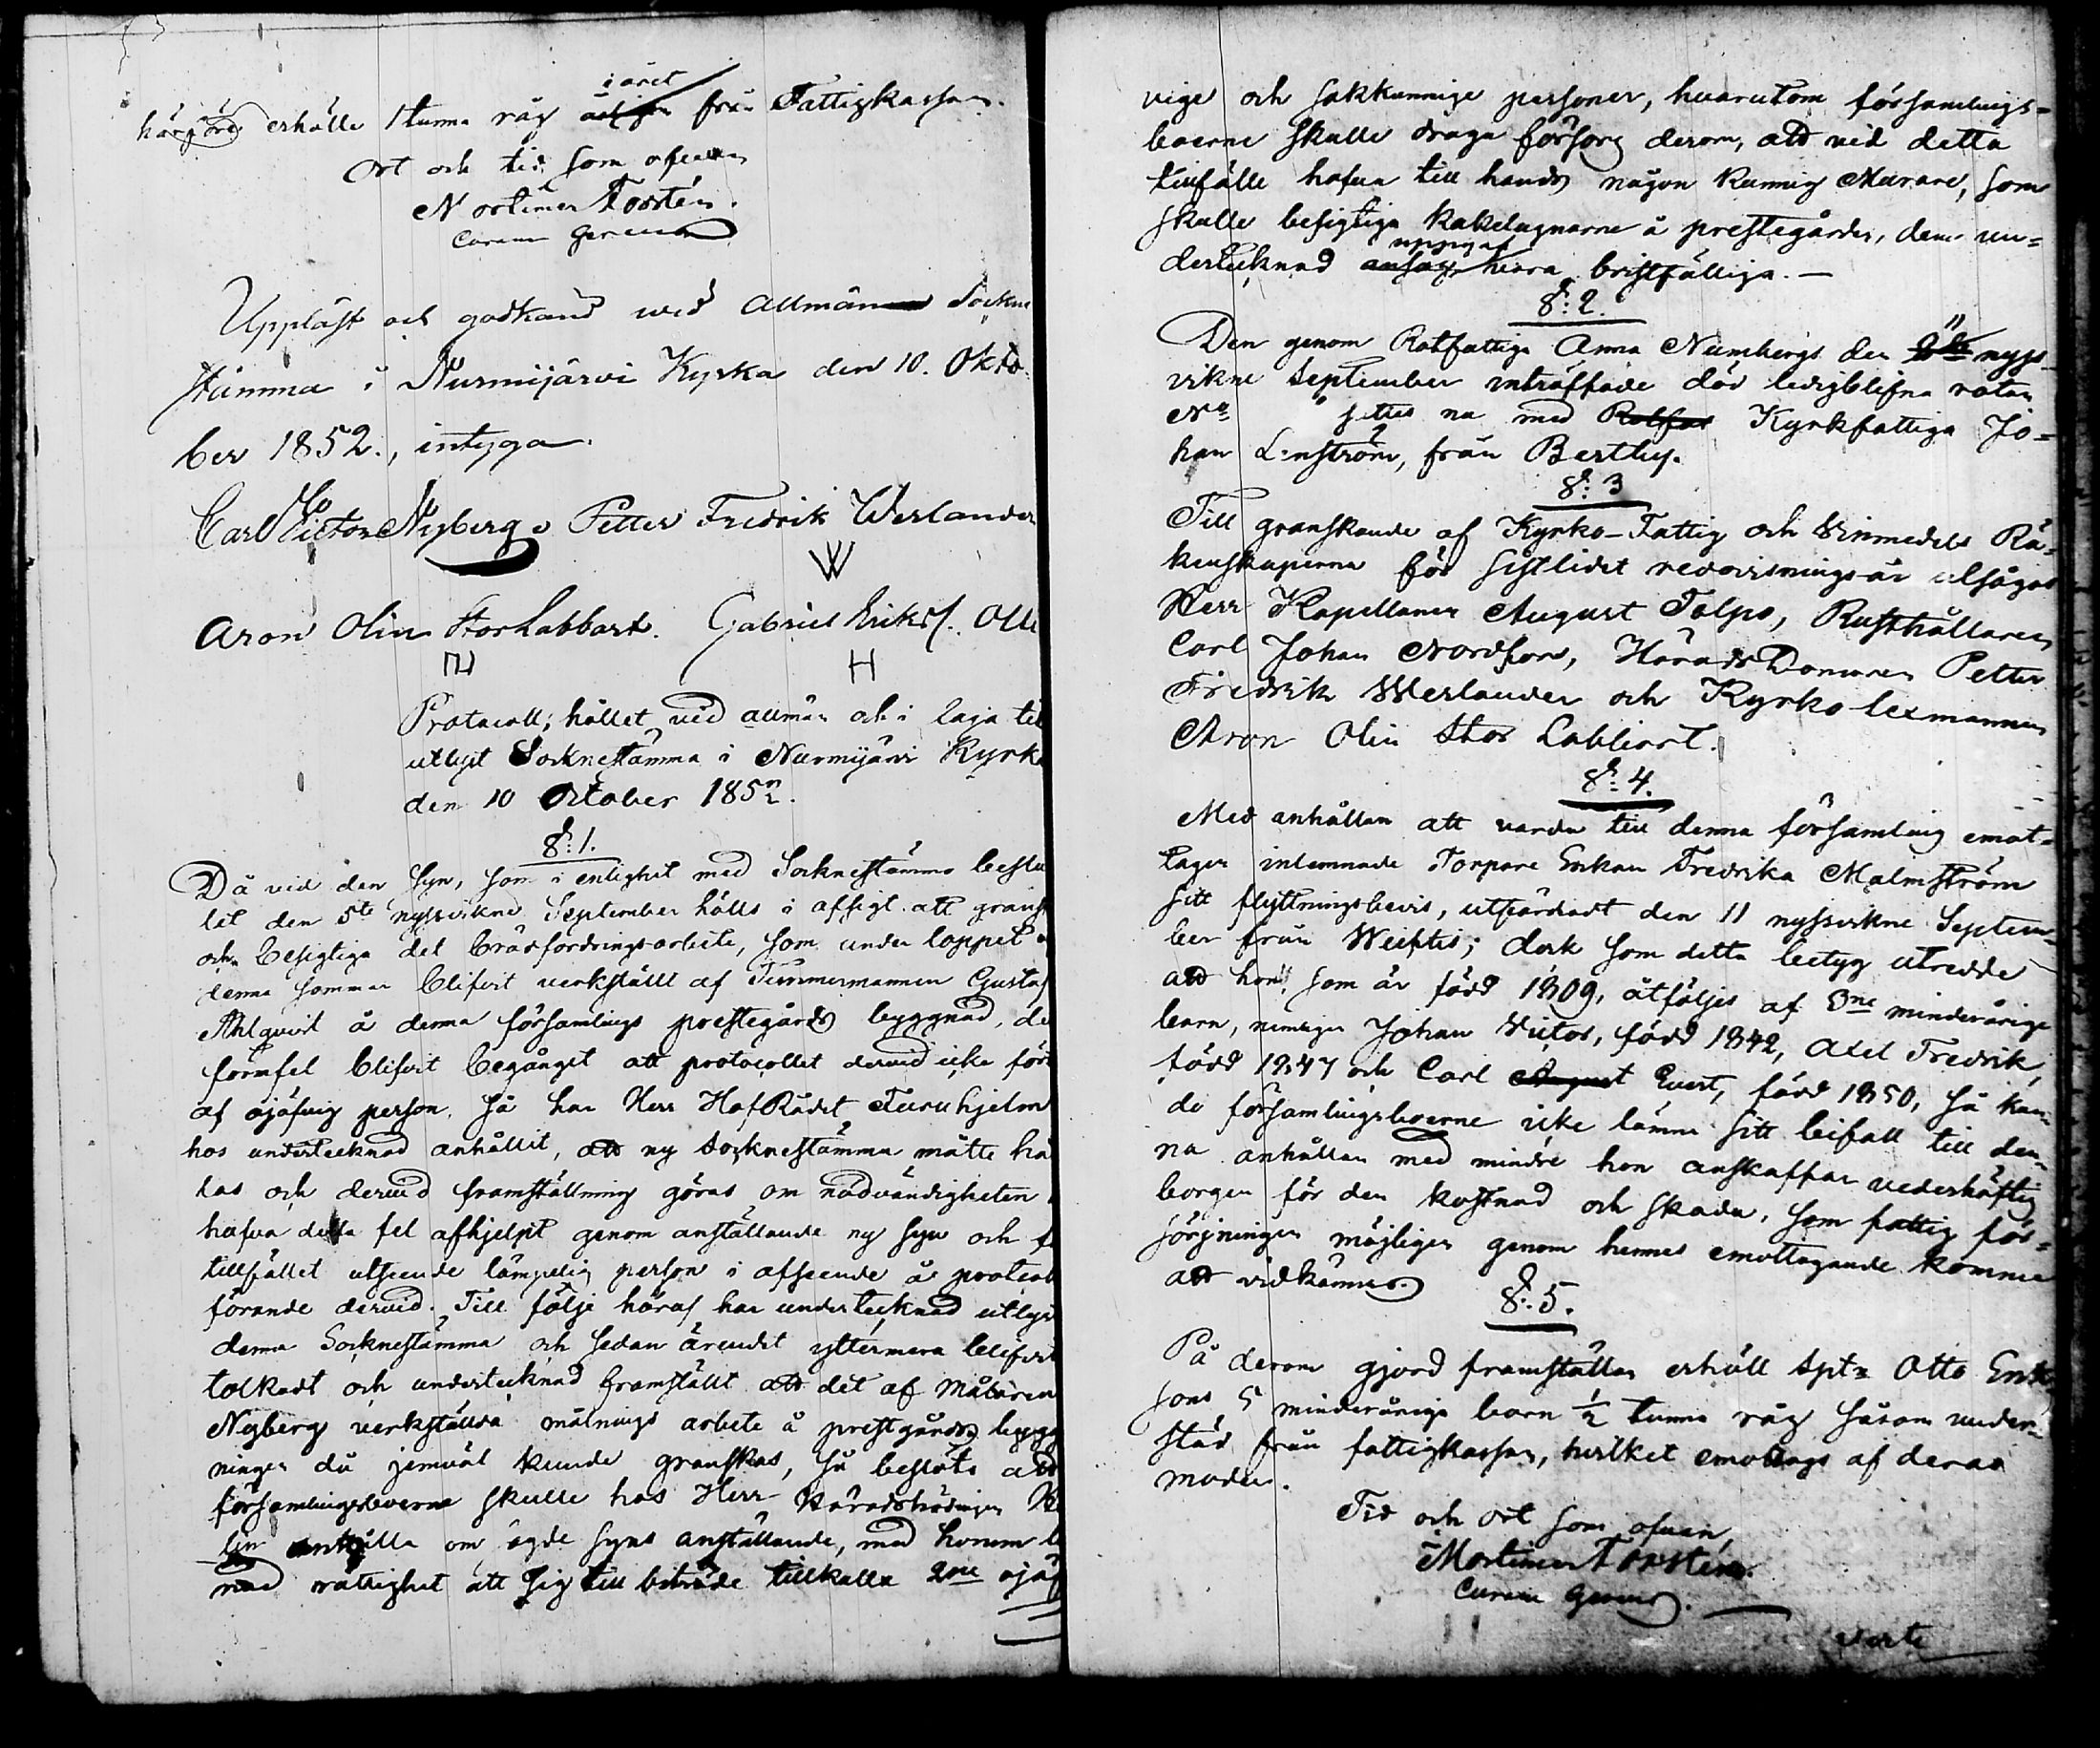 i året
härföre erhålla 1 tunna råg från Fattigkassan.
Ort och tid som ofvan
Mortimer Forstén.
Curam Gerens
Uppläst och godkänd wid Allmän Sockne
stämma i Nurmijärvi Kyrka den 10. Okto
ber 1852., intyga
Carl Victor Nyberg. Petter Fredrik Werlander
W
Aron Olin Stor Labbart. Gabriel Eriks. Olli
H
Protocoll, hållet vid allmän och i laga tid
utlyst Socknestämma i Nurmijärvi Kyrka
den 10 October 1852.
§: 1.
Då vid den Syn, som i enlighet med Socknestämmo beslu
tet den 5te nyssvikne September hölls i afsigt att gransk
och besigtiga det brädfordrings-arbete, som under loppet a
denna sommar blifvit verkställt af Timmermannen Gustaf
Ahlqvist å denna församlings prestegårds byggnad, de
formfel blifvit begånget att protocollet dervid icke förts
af ojäfvig person, så har Herr HofRådet Furuhjelm
hos undertecknad anhållit, att ny Socknestämma måtte hål
las och dervid framställning göras om nödvändigheten
hafva detta fel afhjelpt genom anställande ny syn och f
tillfället utseende lämpelig person i afseende å protocol
förande dervid. Till följe häraf har undertecknad utlyst
denna Socknestämma och sedan ärendet yttermera blifvit
tolkadt och undertecknad framställt att det af Målaren
Nyberg verkställda målnings arbete å prestgårds bygg
ningen då jemväl kunde granskas, så beslöts att
församlingsboerne skulle hos Herr Häradshöfdingen
anhålla om ägde syns anställande, med honom
rättighet att sig till biträde tillkalla 2ne ojäf
vige och sakkunnige personer, hvarutom församlings-
boerne skulle draga försorg derom, att vid detta
tillfälle hafva till hands någon kunnig Murare, som
skulle besigtiga kakelugnarne å prestegården, dem un-
uppgifvit
dertecknad ansåg vara bristfälliga. —
§: 2.
11
Den genom Rotfattiga Anna Numbergs den nyss
vikne September inträffade död ledigblifna rotan
No " settes nu med Rotfat Kyrkfattiga Jo-
han Lenström, från Bertby.
§: 3
Till granskande af Kyrko- Fattig och Vinmedels Rä-
kenskaperna för sistlidet redovisnings-år utsågos
Herr Kapellanen August Talpo, Rusthållaren
Carl Johan Nordfors, HäradsDomaren Petter
Fredrik Werlander och Kyrko lexmannen
Aron Olin Stor Labbart.
§: 4.
Med anhållan att varda till denna församling emot-
tagen inlemnade Torpare Enkan Fredrika Malmström
sitt flyttningsbevis, utfärdadt den 11 nyssvikne Septem-
ber från Weiftis; dock som detta betyg utredde
att hon, som är född 1809, åtföljes af 3ne minderårige
barn, nemligen Johan Victor, född 1842, Axel Fredrik,
född 1847 och Carl August Evert, född 1850, så kun-
de församlingsboerne icke lämna sitt bifall till den-
na anhållan med mindre hon anskaffar vederhäftig
borgen för den kostnad och skada, som fattig för-
sörjningen möjligen genom hennes emottagande komme
att vidkännas.
§: 5.
På derom gjord framställan erhöll Spt: Otto Eriks
sons 5 minderåriga barn ½ tunna råg såsom under-
stöd från fattigkassan, hvilket emottogs af deras
moder.
Tid och ort som ofvan
Mortimer Forstén.
Curam Gerens.
Verte